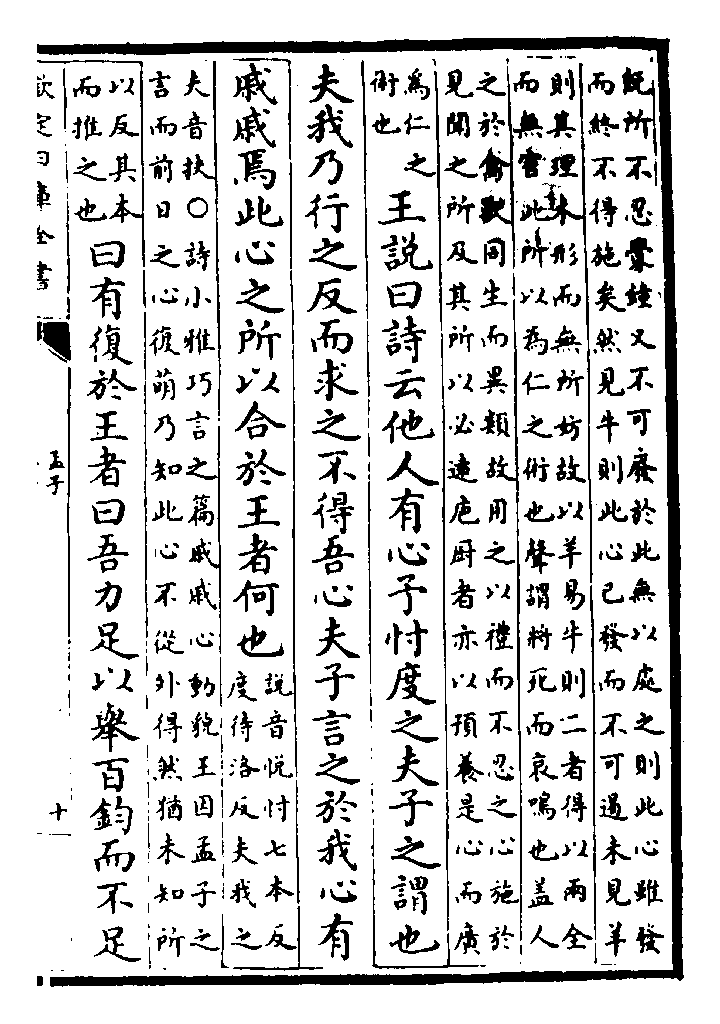 旣所不忍釁鐘又不可廢於此無以處之則此心雖發
而終不得施矣然見牛則此心已發而不可遏未見羊
則其理未形而無所妨故以羊易牛則二者得以兩全
而無害此所以為仁之術也聲謂將死而哀鳴也盖人
之於禽獸同生而異類故用之以禮而不忍之心施於
見聞之所及其所以必遠庖厨者亦以預養是心而廣
為仁之
術也
王説曰詩云他人有心予忖度之夫子之謂也
夫我乃行之反而求之不得吾心夫子言之於我心有
戚戚焉此心之所以合於王者何也
説音悦忖七本反
度待洛反夫我之
夫音扶○詩小雅巧言之篇戚戚心動貌王因孟子之
言而前日之心復萌乃知此心不從外得然猶未知所
以反其本
而推之也
曰有復於王者曰吾力足以舉百鈞而不足
欽定四庫全書
孟子
十